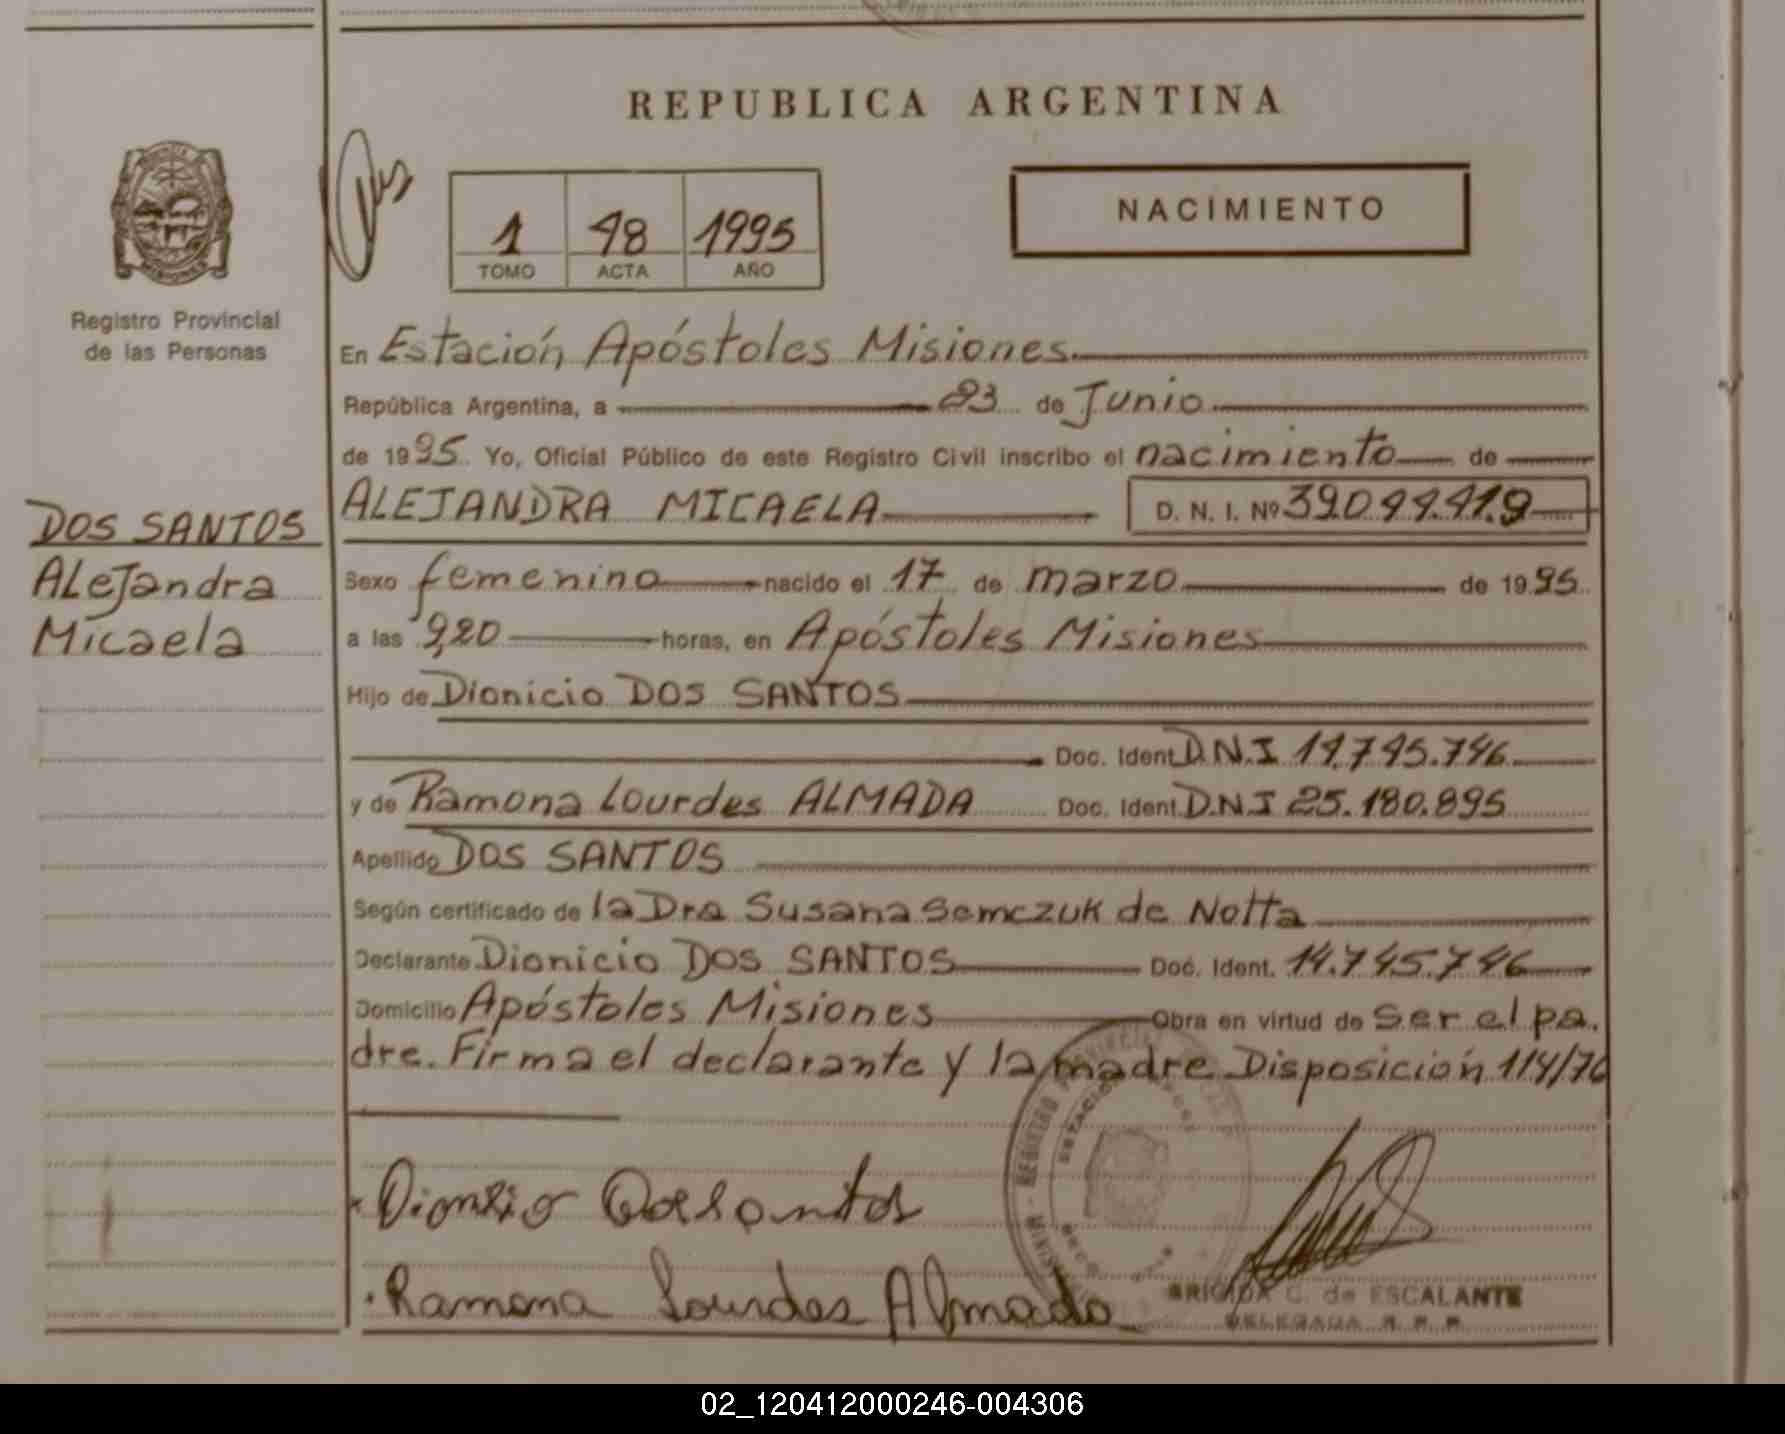 REPUBLICA ARGENTINA
NACIMIENTO
1 48 1995
TOMO ACTA AÑO
Registro Provincial
de las Personas
DOS SANTOS
Alejandra
Micaela
En Estación Apóstoles Misiones
República Argentina, a 23 de Junio
de 1995 Yo, Oficial Público de este Registro Civil inscribo el nacimiento de
ALEJANDRA MICAELA D. N. I. Nº 39.044.419
Sexo femenino nacido el 17 de marzo de 1995
a las 9,20 horas, en Apóstoles Misiones
Hijo de Dionicio DOS SANTOS
Doc. Ident. D.N.I 14.745.746
y de Ramona Lourdes ALMADA Doc. Ident. D.N.I 25.180.895
Apellido DOS SANTOS
Según certificado de la Dra Susana Semczuk de Notta
Declarante Dionicio DOS SANTOS Doc. Ident. 14.745.746
Domicilio Apóstoles Misiones Obra en virtud de ser el pa.
dre. Firma el declarante y la madre Disposición 114/70
Dionisio Dos Santos
Ramona Lourdes Almada
BRIGIDA C. de ESCALANTE
DELEGADA
02_120412000246-004306